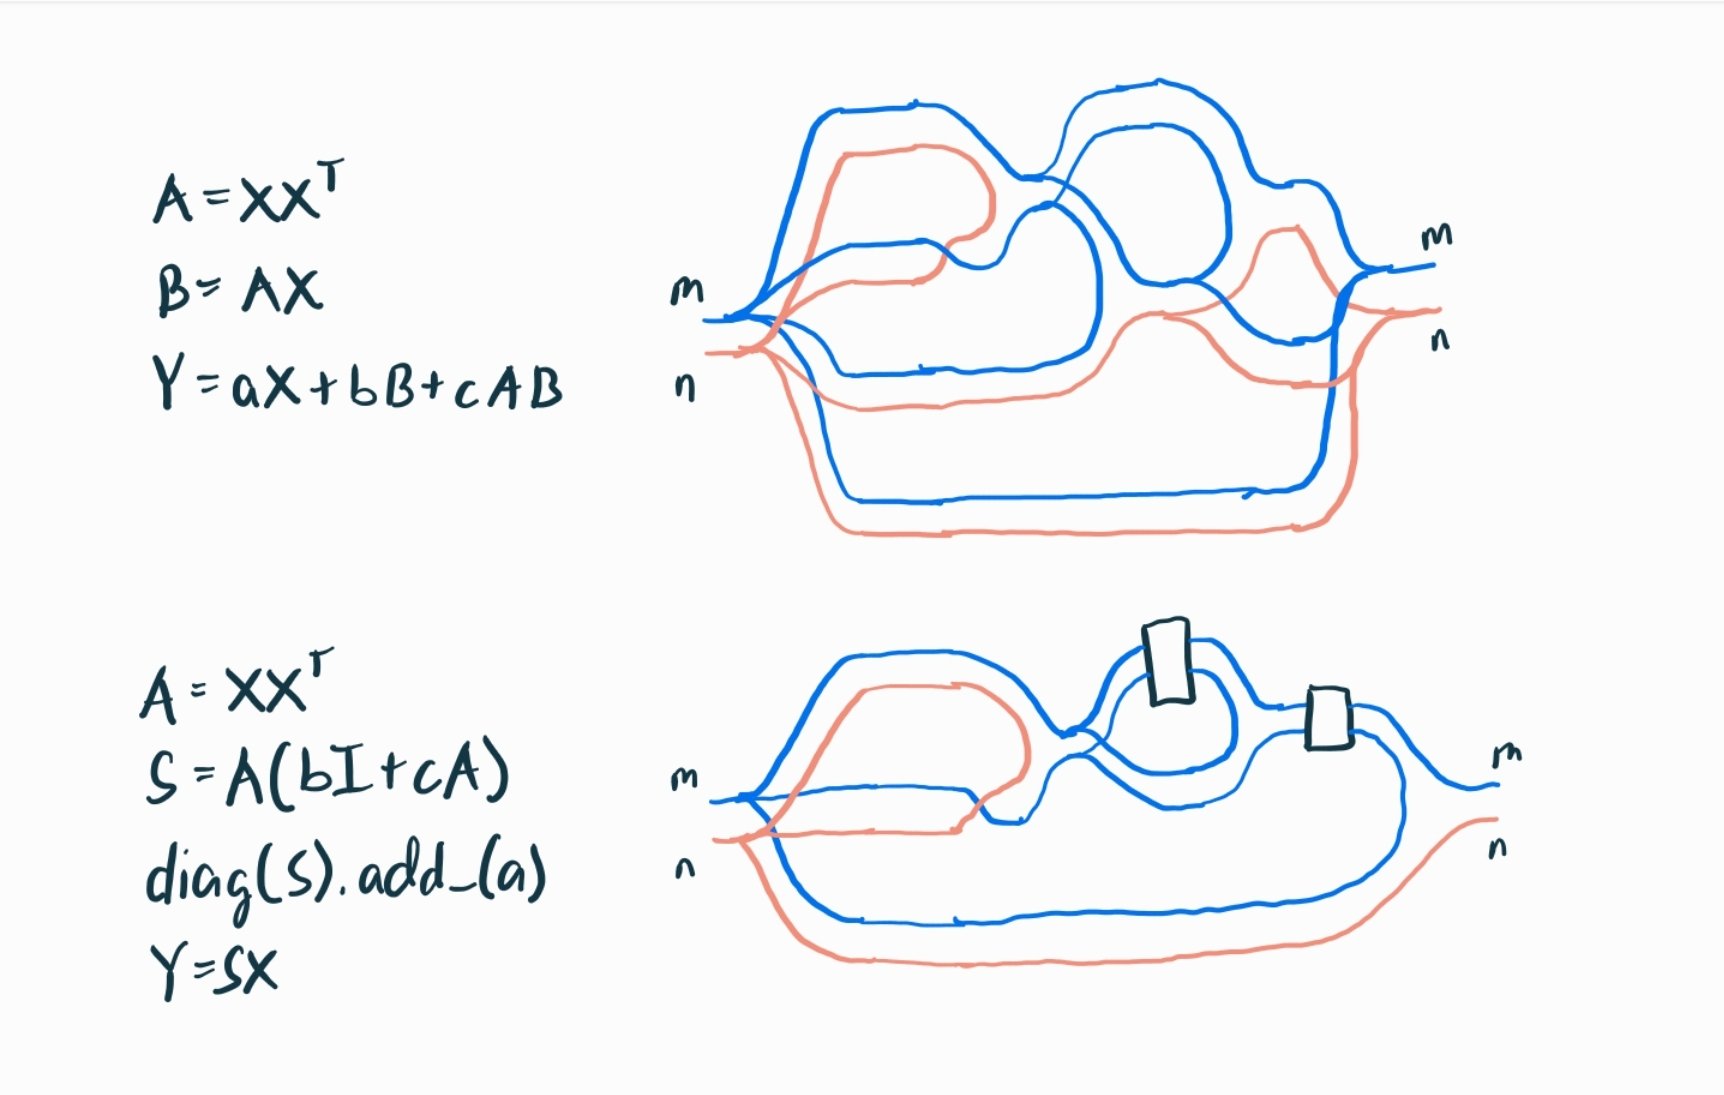 A = XXᵀ
B = AX
Y = aX + bB + cAB
m
n
m
n
A = XXᵀ
S = A(bI + cA)
diag(S).add_(a)
Y = SX
m
n
m
n